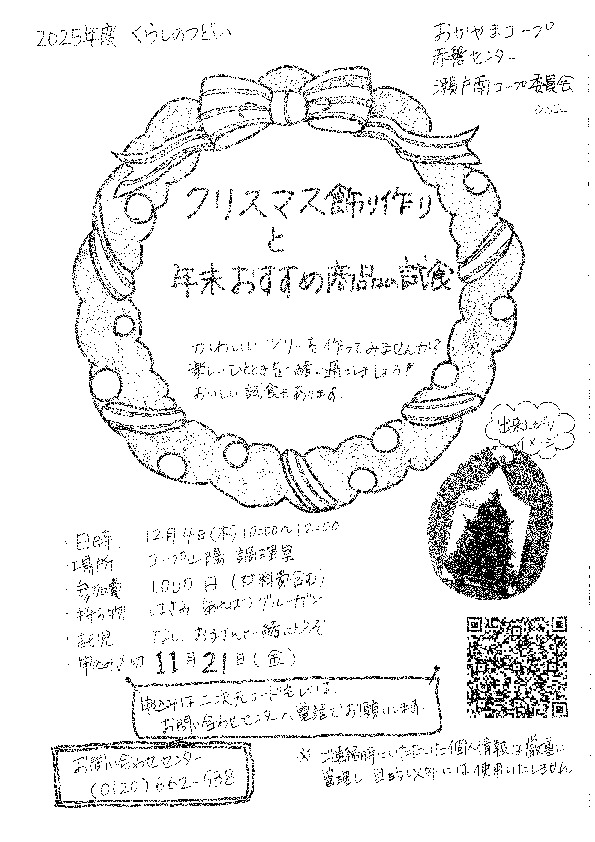 2025年度 くらしのつどい
おかやまコープ
赤磐センター
瀬戸南コープ委員会
クリスマス飾り作り
と
年末おすすめ商品の試食
かわいい ツリーを作ってみませんか?
楽しいひとときを一緒に過ごしましょう
おいしい試食もあります。
出来上がり
イメージ
・日時 12月4日(木)10:00~12:00
・場所 コープ山陽 調理室
・参加費 1,000円(材料費含む)
・持ち物 はさみ グルーガン
・託児 なし、お子さんと一緒にどうぞ
・申込〆切 11月21日(金)
申込みは二次元コードもしくは、
お問い合わせセンターへ電話でお願いします。
お問い合わせセンター
(0120)662-538
※ ご連絡時にいただいた個人情報は厳重に
管理し、目的以外には使用いたしません。